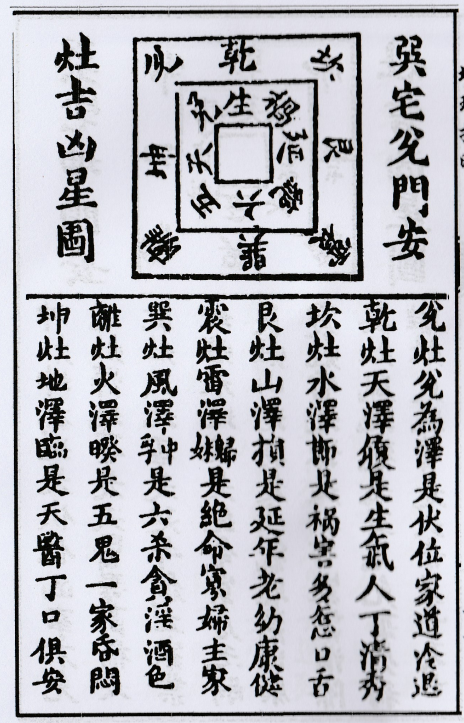 巽宅兌門安
兌 乾 坎
生 禍
坤 天 延 艮
五 六 絕
離 巽 震
灶吉凶星圖
兌灶兌為澤是伏位家道冷退
乾灶天澤履是生氣人丁清秀
坎灶水澤節是禍害多口舌
艮灶山澤損是延年老幼康健
震灶雷澤歸妹是絕命寡婦主家
巽灶風澤中孚是六杀貪淫酒色
離灶火澤睽是五鬼一家昏悶
坤灶地澤臨是天醫丁口俱安